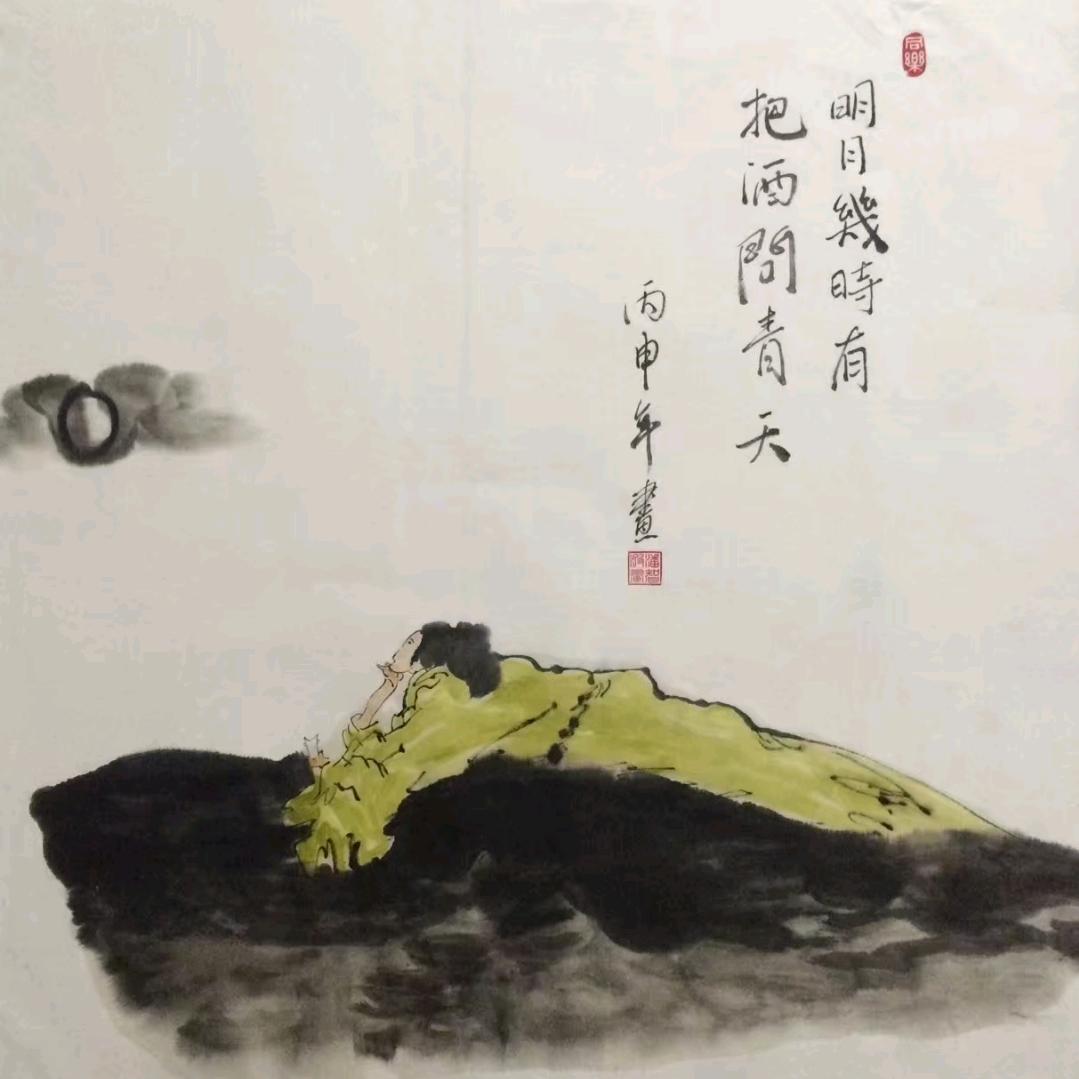 同樂
明月幾時有
把酒問青天
丙申年畫